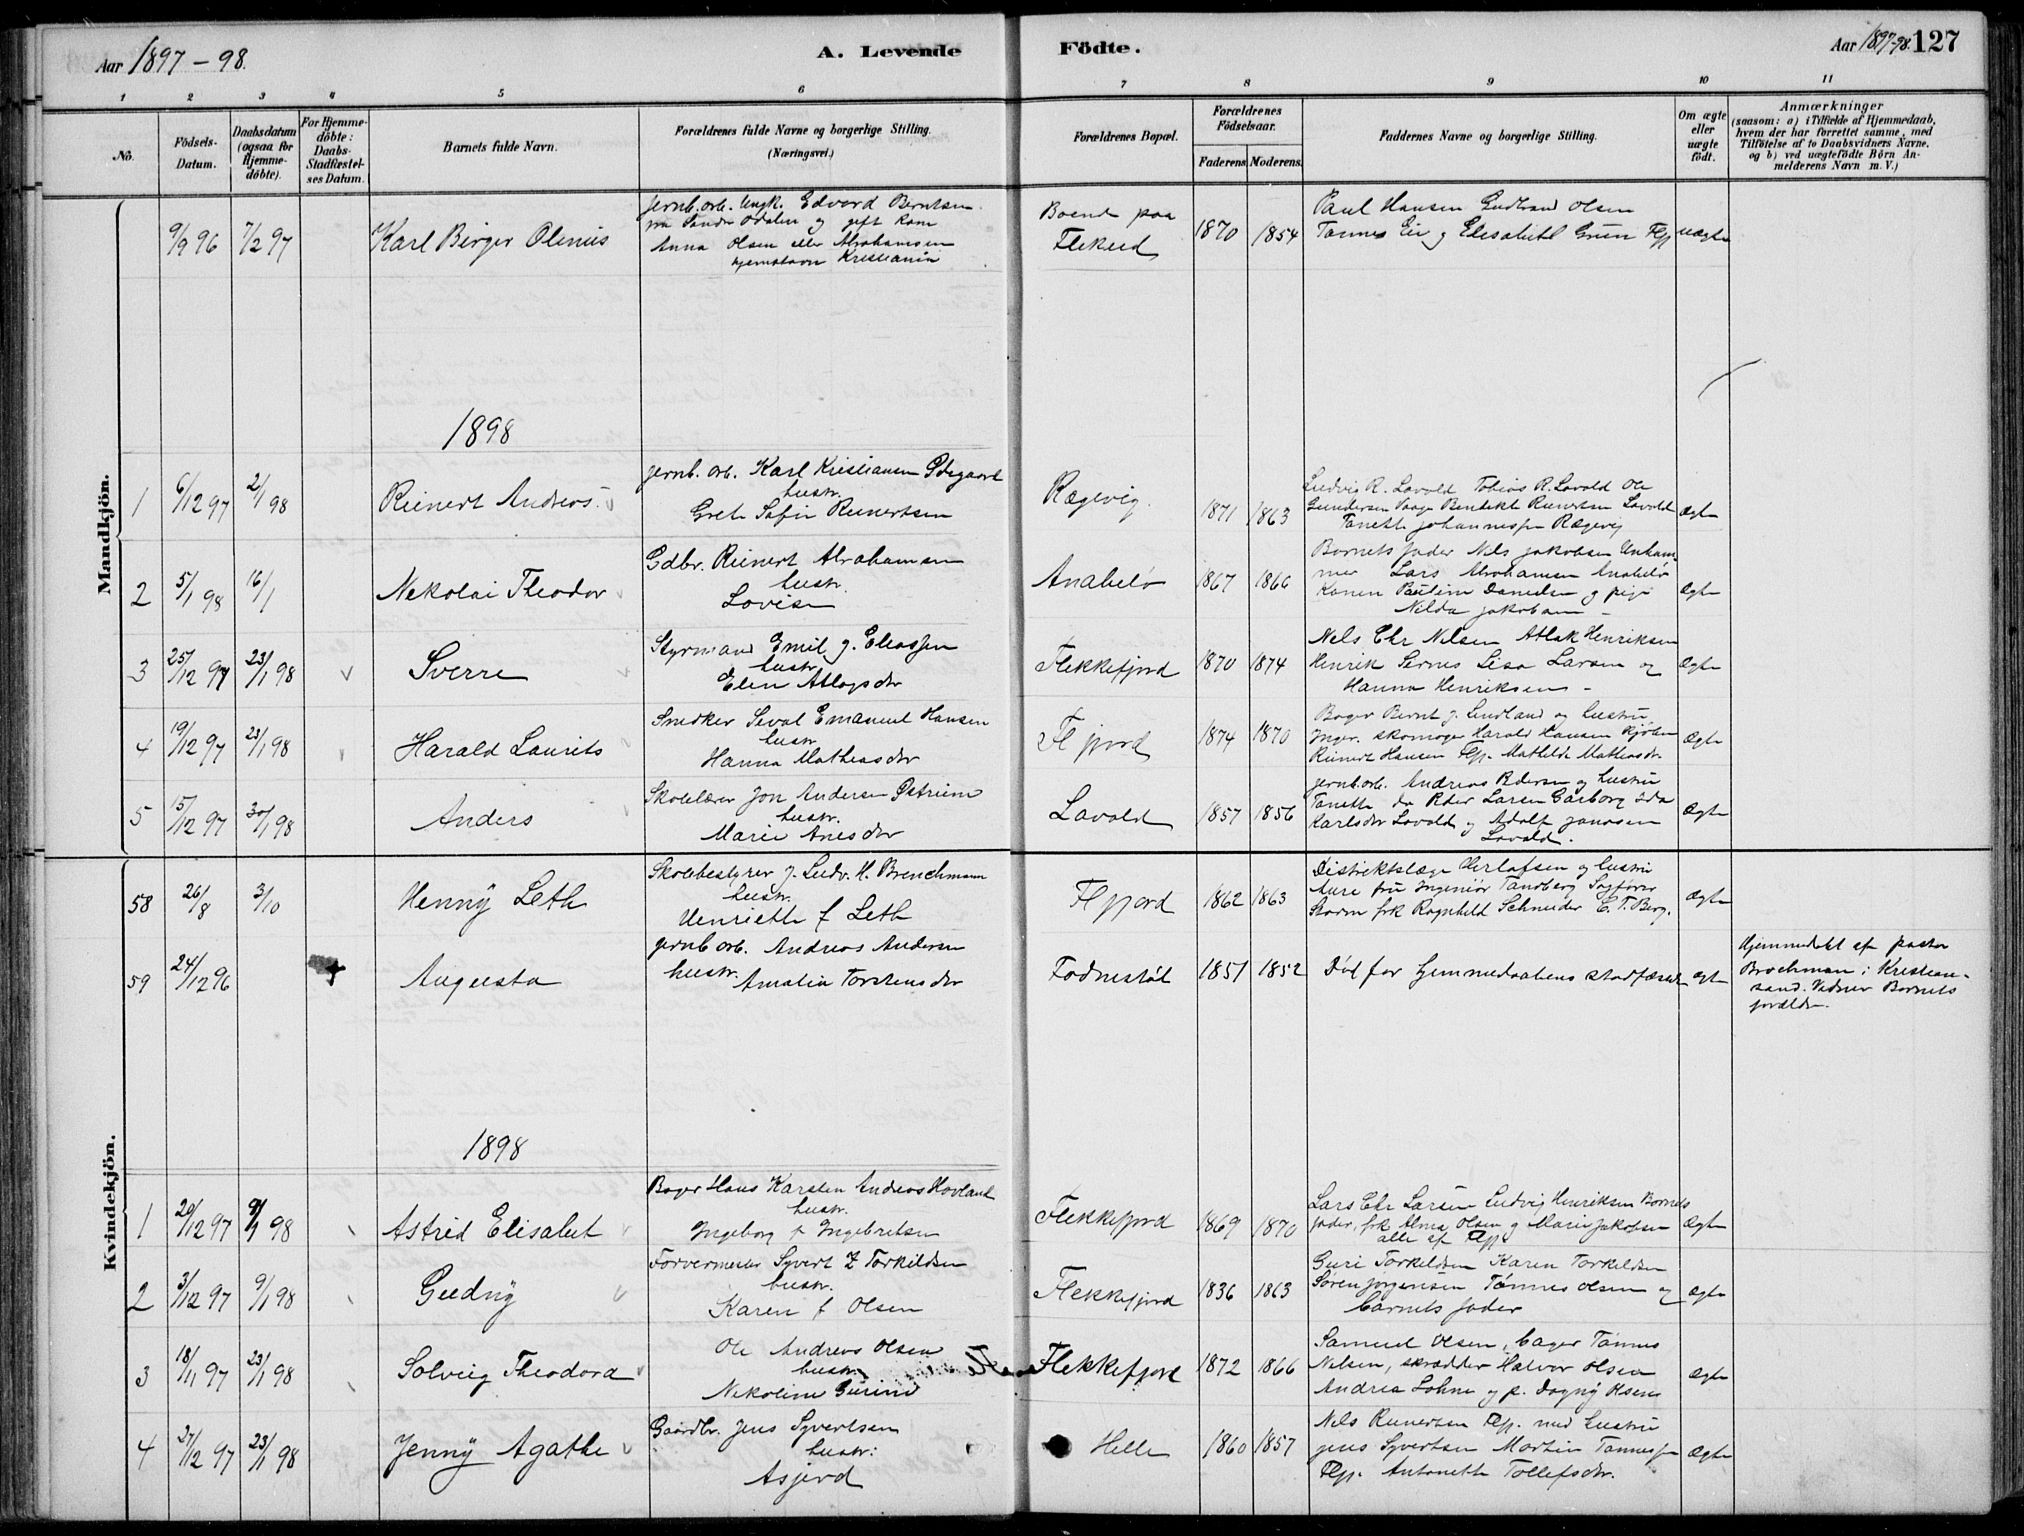 Aar 1897-98.
A. Levende
Födte.
Aar 1897-98. 127
1 2 3 4 5 6 7 8 9 10 11
No.
Födsels-Datum.
Daabsdatum (ogsaa for Hjemme-döbte).
For Hjemme-döbte: Daabs-Stadfæstel-ses Datum.
Barnets fulde Navn.
Forældrenes fulde Navne og borgerlige Stilling. (Næringsvei.)
Forældrenes Bopæl.
Forældrenes Födselsaar.
Faderens Moderens
Faddernes Navne og borgerlige Stilling.
Om ægte eller uægte födt.
Anmærkninger
(saasom: a) i Tilfælde af Hjemmedaab, hvem der har forrettet samme, med Tilföielse af to Daabsvidners Navne, og b) ved uægtefödte Börn An-melderens Navn m. V.)
Mandkjön.
9/9 96 7/2 97 Karl Birger Olenius
Jernb. arb. Ungk. Edvard Berntsen
fra Söndre Odalen og gift Kone
Anna Olsen eller Abrahamsen
hjemstavn Kristiania
Boende paa Flekfd
1870 1854
Paul Hansen Gudbrand Olsen
Tønnes Eie og Elisabeth Grün Flfj
uægte
1898
1 6/12 97 2/1 98 Reinert Andreas
Jernb. arb. Karl Kristiansen Ödegaard
hustr.
Grete Sofie Reinertsen
Rægevig
1871 1863
Ludvig R. Lavold Tobias R. Lavold Ole
Gundersen Vaage Bendikte Reinertsen Lavold
Tanette Johannessen Rægevig
ægte
2 5/1 98 16/1 Nikolai Theodor
Gdbr. Reinert Abrahamsen
hustr.
Lovise
Anabelø
1867 1866
Barnets fader Nils Jakobsen Unham
mer Lars Abrahamsen Anabelø
Konen Pauline Danielsen og pige
Nilda Jakobsen
ægte
3 25/12 97 23/1 98 Sverre
Styrmand Emil J. Eliassen
hustr.
Elen Atlagsdtr
Flekkefjord
1870 1874
Nels Chr Nilsen Atlak Henriksen
Henrik Sernes Lisa Larsen og
Hanna Henriksen
ægte
4 19/12 97 23/1 98 Harald Laurits
Snedker Sivat Emanuel Hansen
hustr.
Hanna Mathiasdtr
Flfjord
1874 1870
Bager Bernt J. Lindland og hustru
Inger. skomager Harald Hansen
Reinert Hansen Flfj. Mathilde Mathiasdtr.
ægte
5 15/12 97 30/1 98 Anders
Skolelærer Jon Andersen Østrem
hustr.
Marie Anesdtr
Lavold
1857 1856
Jernb. arb. Andreas Pedersen og hustru
Tanette do Peder Larsen Garborg Ida
Karlsdtr Lavold og Adolf Janssen
Lavold.
ægte
Kvindekjön.
58 26/8 3/10 Henny Leth
Skolebestyrer J. Ludv. M. Brenchmann
hustr.
Henriette f Leth
Flfjord
1862 1863
Distriktslæge Herlofsen og hustru
Aure fru Ingeniør Tandberg Sagfører
Storm frk Ragnhild Schneider E. T. Berg.
ægte
59 24/12 96 Augusta
Jernb arb. Andreas Andersen
hustr. Amalia Torstensdtr
Fodnestøl
1851 1852
Død før hjemmedaabens stadfæstelse
ægte
Hjemmedøbt af pastor
Brochman i Kristian-
sand. Vidner Barnets
forældre.
1898
1 20/12 97 9/1 98 Astrid Elisabet
Bager Hans Karsten Andreas Hovland
hustr.
Ingeborg f Ingebretsen
Flekkefjord
1869 1870
Lars Chr Larsen Ludvig Henriksen Barnets
fader, frk Alma Olsen og Marie Jakobsen
alle af Flfj.
ægte
2 3/12 97 9/1 98 Gudny
Farvermester Syvert Z Torkildsen
hustr.
Karen f Olsen
Flekkefjord
1836 1863
Guri Torkildsen Karen Torkildsen
Søren Jørgensen Tønnes Olsen og
barnets fader
ægte
3 18/11 97 23/1 98 Solveig Theodora
Ole Andreas Olsen
hustr.
Nikoline Gurine
Flekkefjord
1872 1866
Samuel Olsen, bager Tønnes
Nilsen, skrædder Halvor Olsen
Andrea Lohne og p. Dagny Olsen
ægte
4 27/12 97 23/1 98 Jenny Agathe
Gaardbr. Jens Syvertsen
hustr:
Asjerd
Helle
1860 1857
Nels Reinertsen Flfj. med hustru
Jens Syvertsen Martin Tønnessen
Flfj. Antonette Tollefsdtr.
ægte